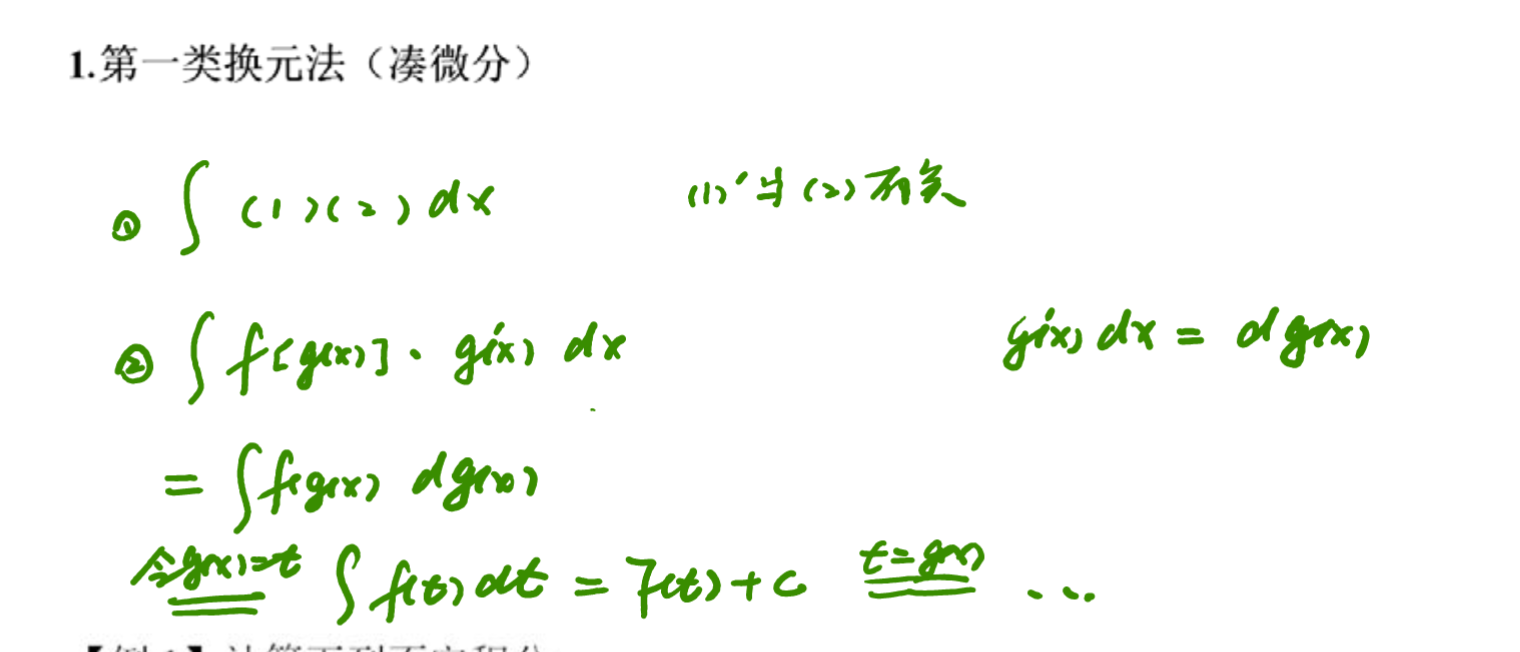 1.第一类换元法（凑微分）
① ∫ (1)(2) dx (1)′与(2)有关
② ∫ f[g(x)]·g′(x) dx g′(x) dx = dg(x)
= ∫ f(g(x)) dg(x)
令g(x)=t ∫ f(t) dt = F(t)+C t=g(x) ...